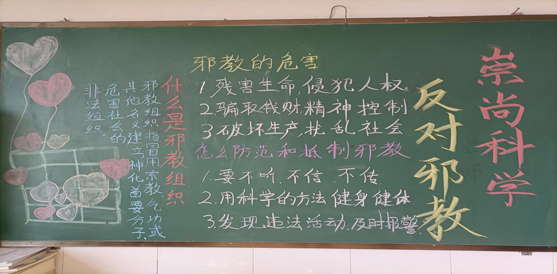 崇尚科学
反对邪教
邪教的危害
1.残害生命,侵犯人权。
2.骗取钱财精神控制
3.破坏生产,扰乱社会
怎么防范和抵制邪教
1.要不听、不信、不传。
2.用科学的方法健身健体
3.发现违法活动,及时报警
什么是邪教组织
邪教组织指冒用宗教气功或
其他名义建立神化首要分子,
危害社会的
非法组织。